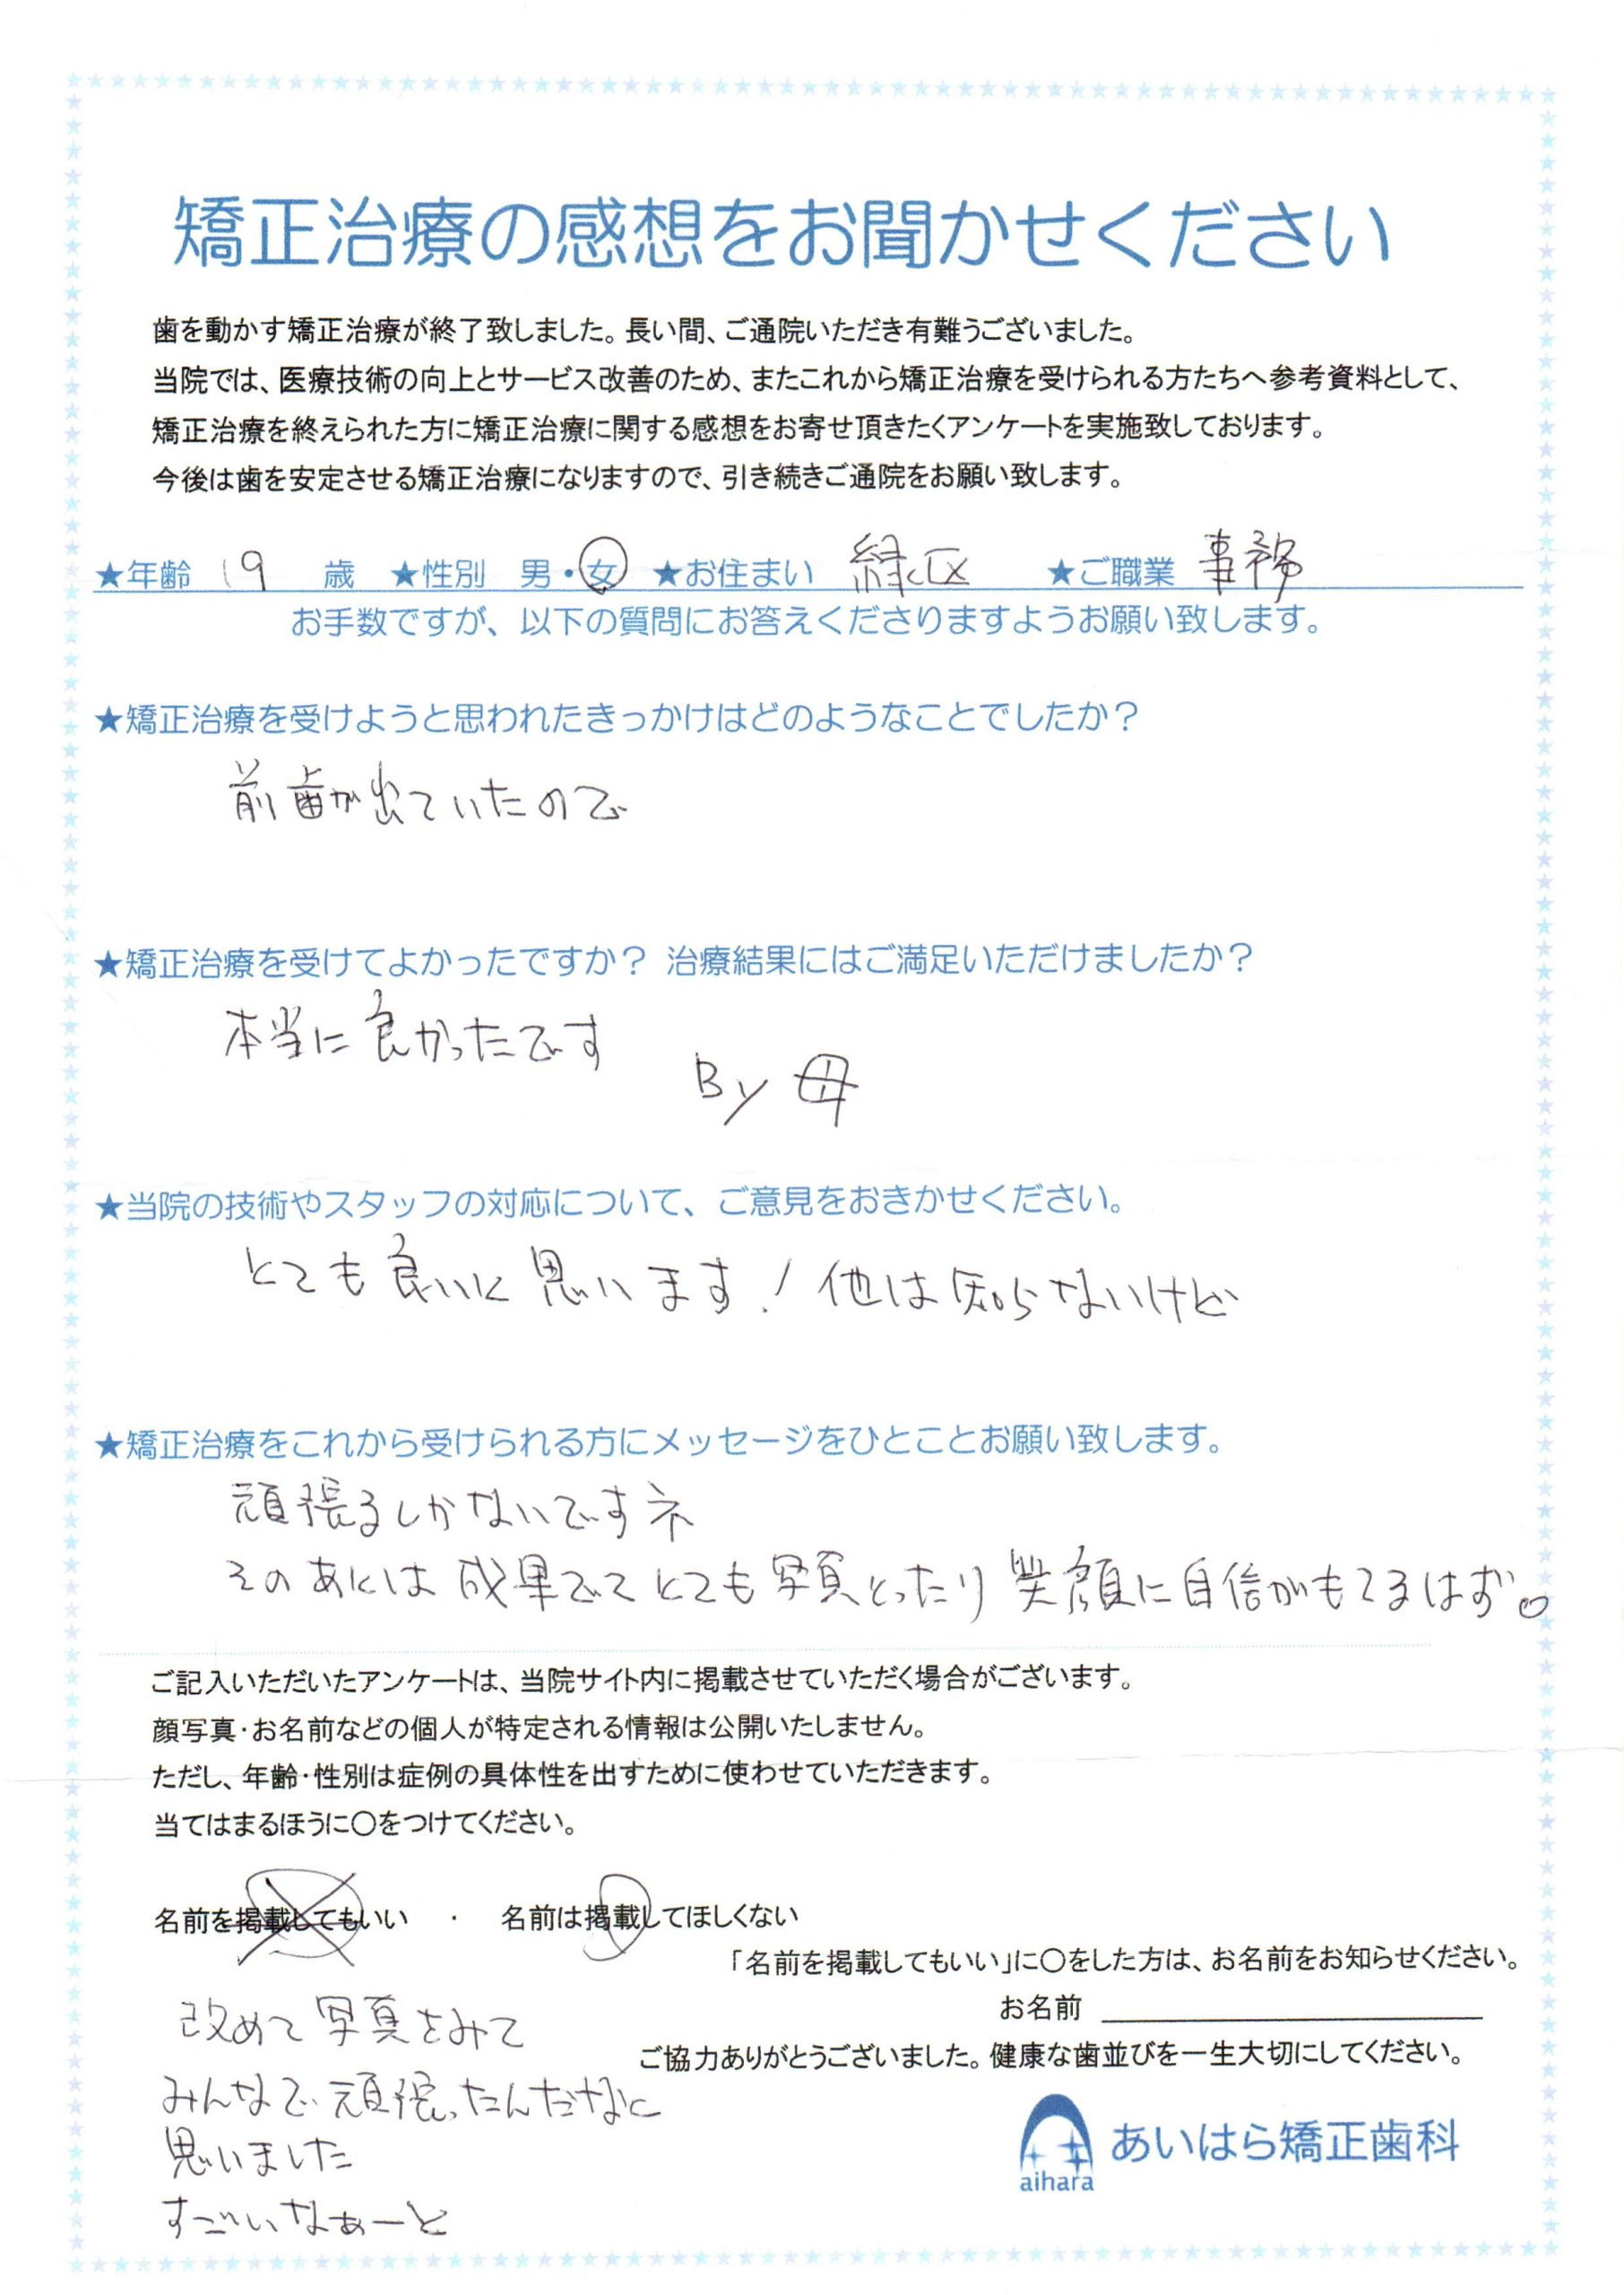 矯正治療の感想をお聞かせください
歯を動かす矯正治療が終了致しました。長い間、ご通院いただき有難うございました。
当院では、医療技術の向上とサービス改善のため、またこれから矯正治療を受けられる方たちへ参考資料として、
矯正治療を終えられた方に矯正治療に関する感想をお寄せ頂きたくアンケートを実施致しております。
今後は歯を安定させる矯正治療になりますので、引き続きご通院をお願い致します。
★年齢 19 歳 ★性別 男・女 ★お住まい 緑区 ★ご職業 事務
お手数ですが、以下の質問にお答えくださりますようお願い致します。
★矯正治療を受けようと思われたきっかけはどのようなことでしたか？
前歯が出ていたので
★矯正治療を受けてよかったですか？ 治療結果にはご満足いただけましたか？
本当に良かったです
By 母
★当院の技術やスタッフの対応について、ご意見をおきかせください。
とても良いと思います! 他は知らないけど
★矯正治療をこれから受けられる方にメッセージをひとことお願い致します。
頑張るしかないですネ
そのあとは成果でてとても写真とったり笑顔に自信がもてるはず。
ご記入いただいたアンケートは、当院サイト内に掲載させていただく場合がございます。
顔写真・お名前などの個人が特定される情報は公開いたしません。
ただし、年齢・性別は症例の具体性を出すために使わせていただきます。
当てはまるほうに〇をつけてください。
名前を掲載してもいい ・ 名前は掲載してほしくない
「名前を掲載してもいい」に〇をした方は、お名前をお知らせください。
お名前
ご協力ありがとうございました。健康な歯並びを一生大切にしてください。
改めて写真をみて
みんなで頑張ったんだなと
思いました
すごいなぁーと
aihara
あいはら矯正歯科